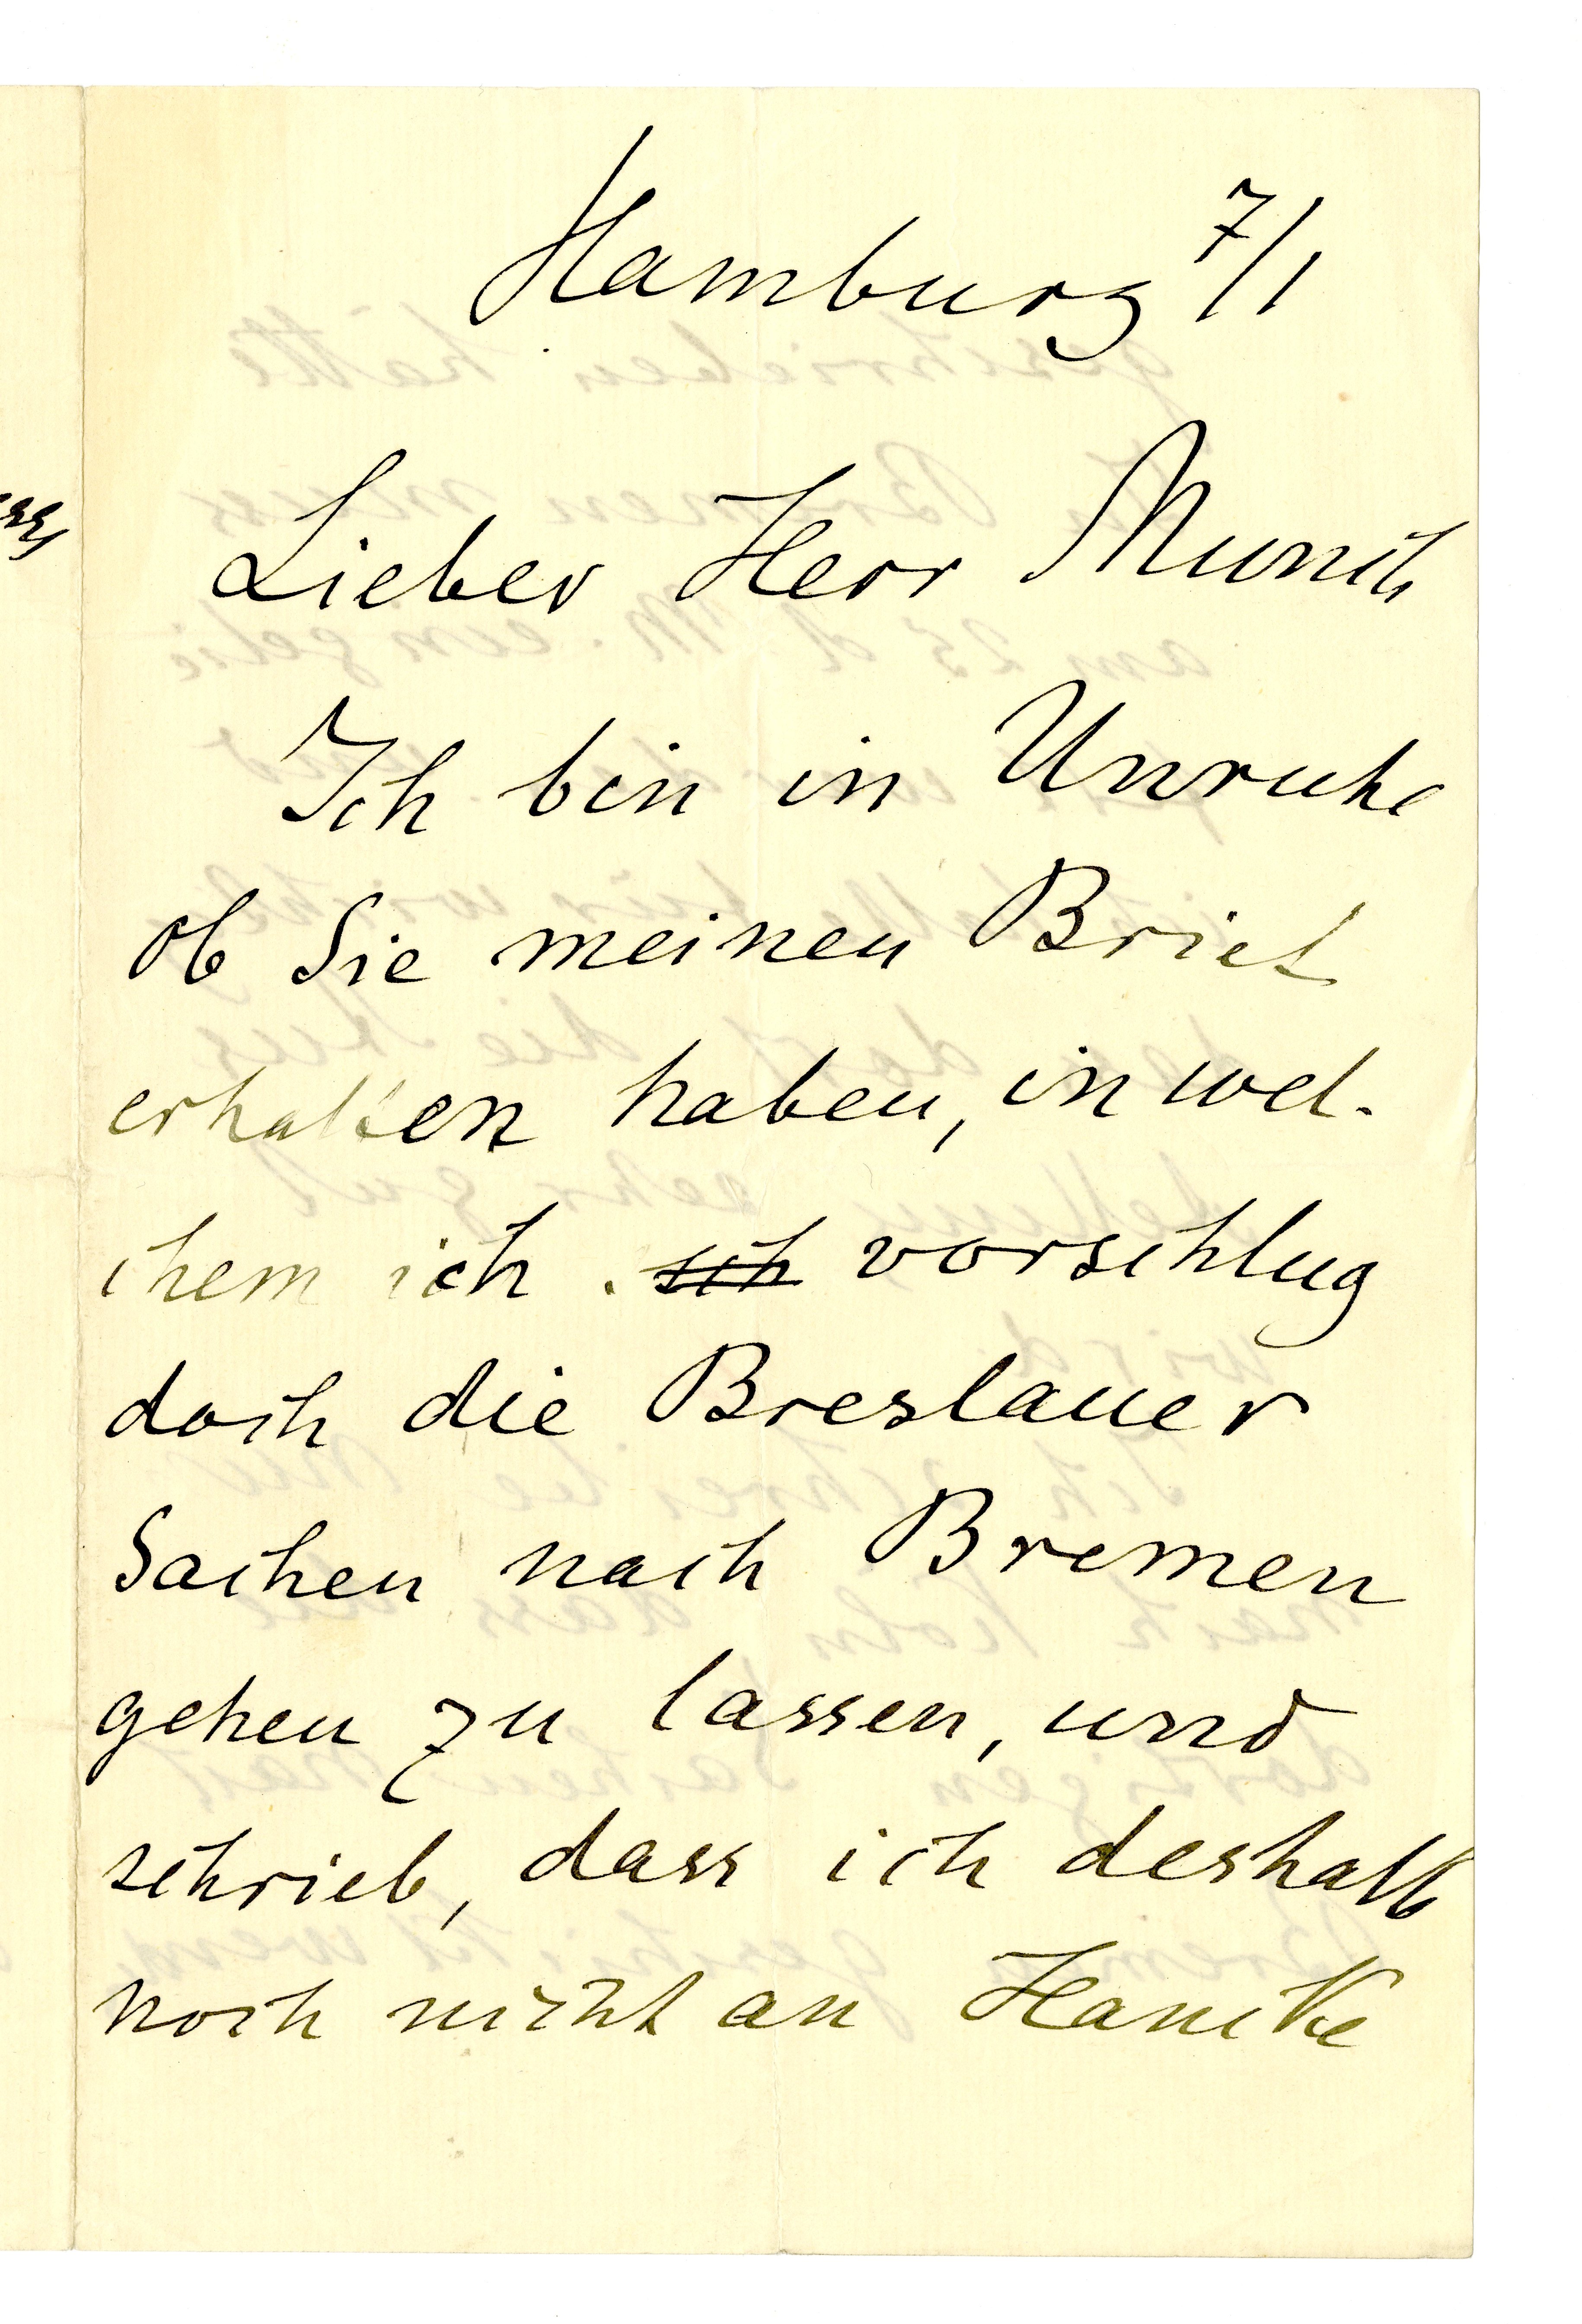 Hamburg 7/1
Lieber Herr Munch
Ich bin in Unruhe
ob Sie meinen Brief
erhalten haben, in wel-
chem ich sch vorschlug
doch die Breslauer
Sachen nach Bremen
gehen zu lassen, und
schrieb, dass ich deshalb
noch nicht an Hancke